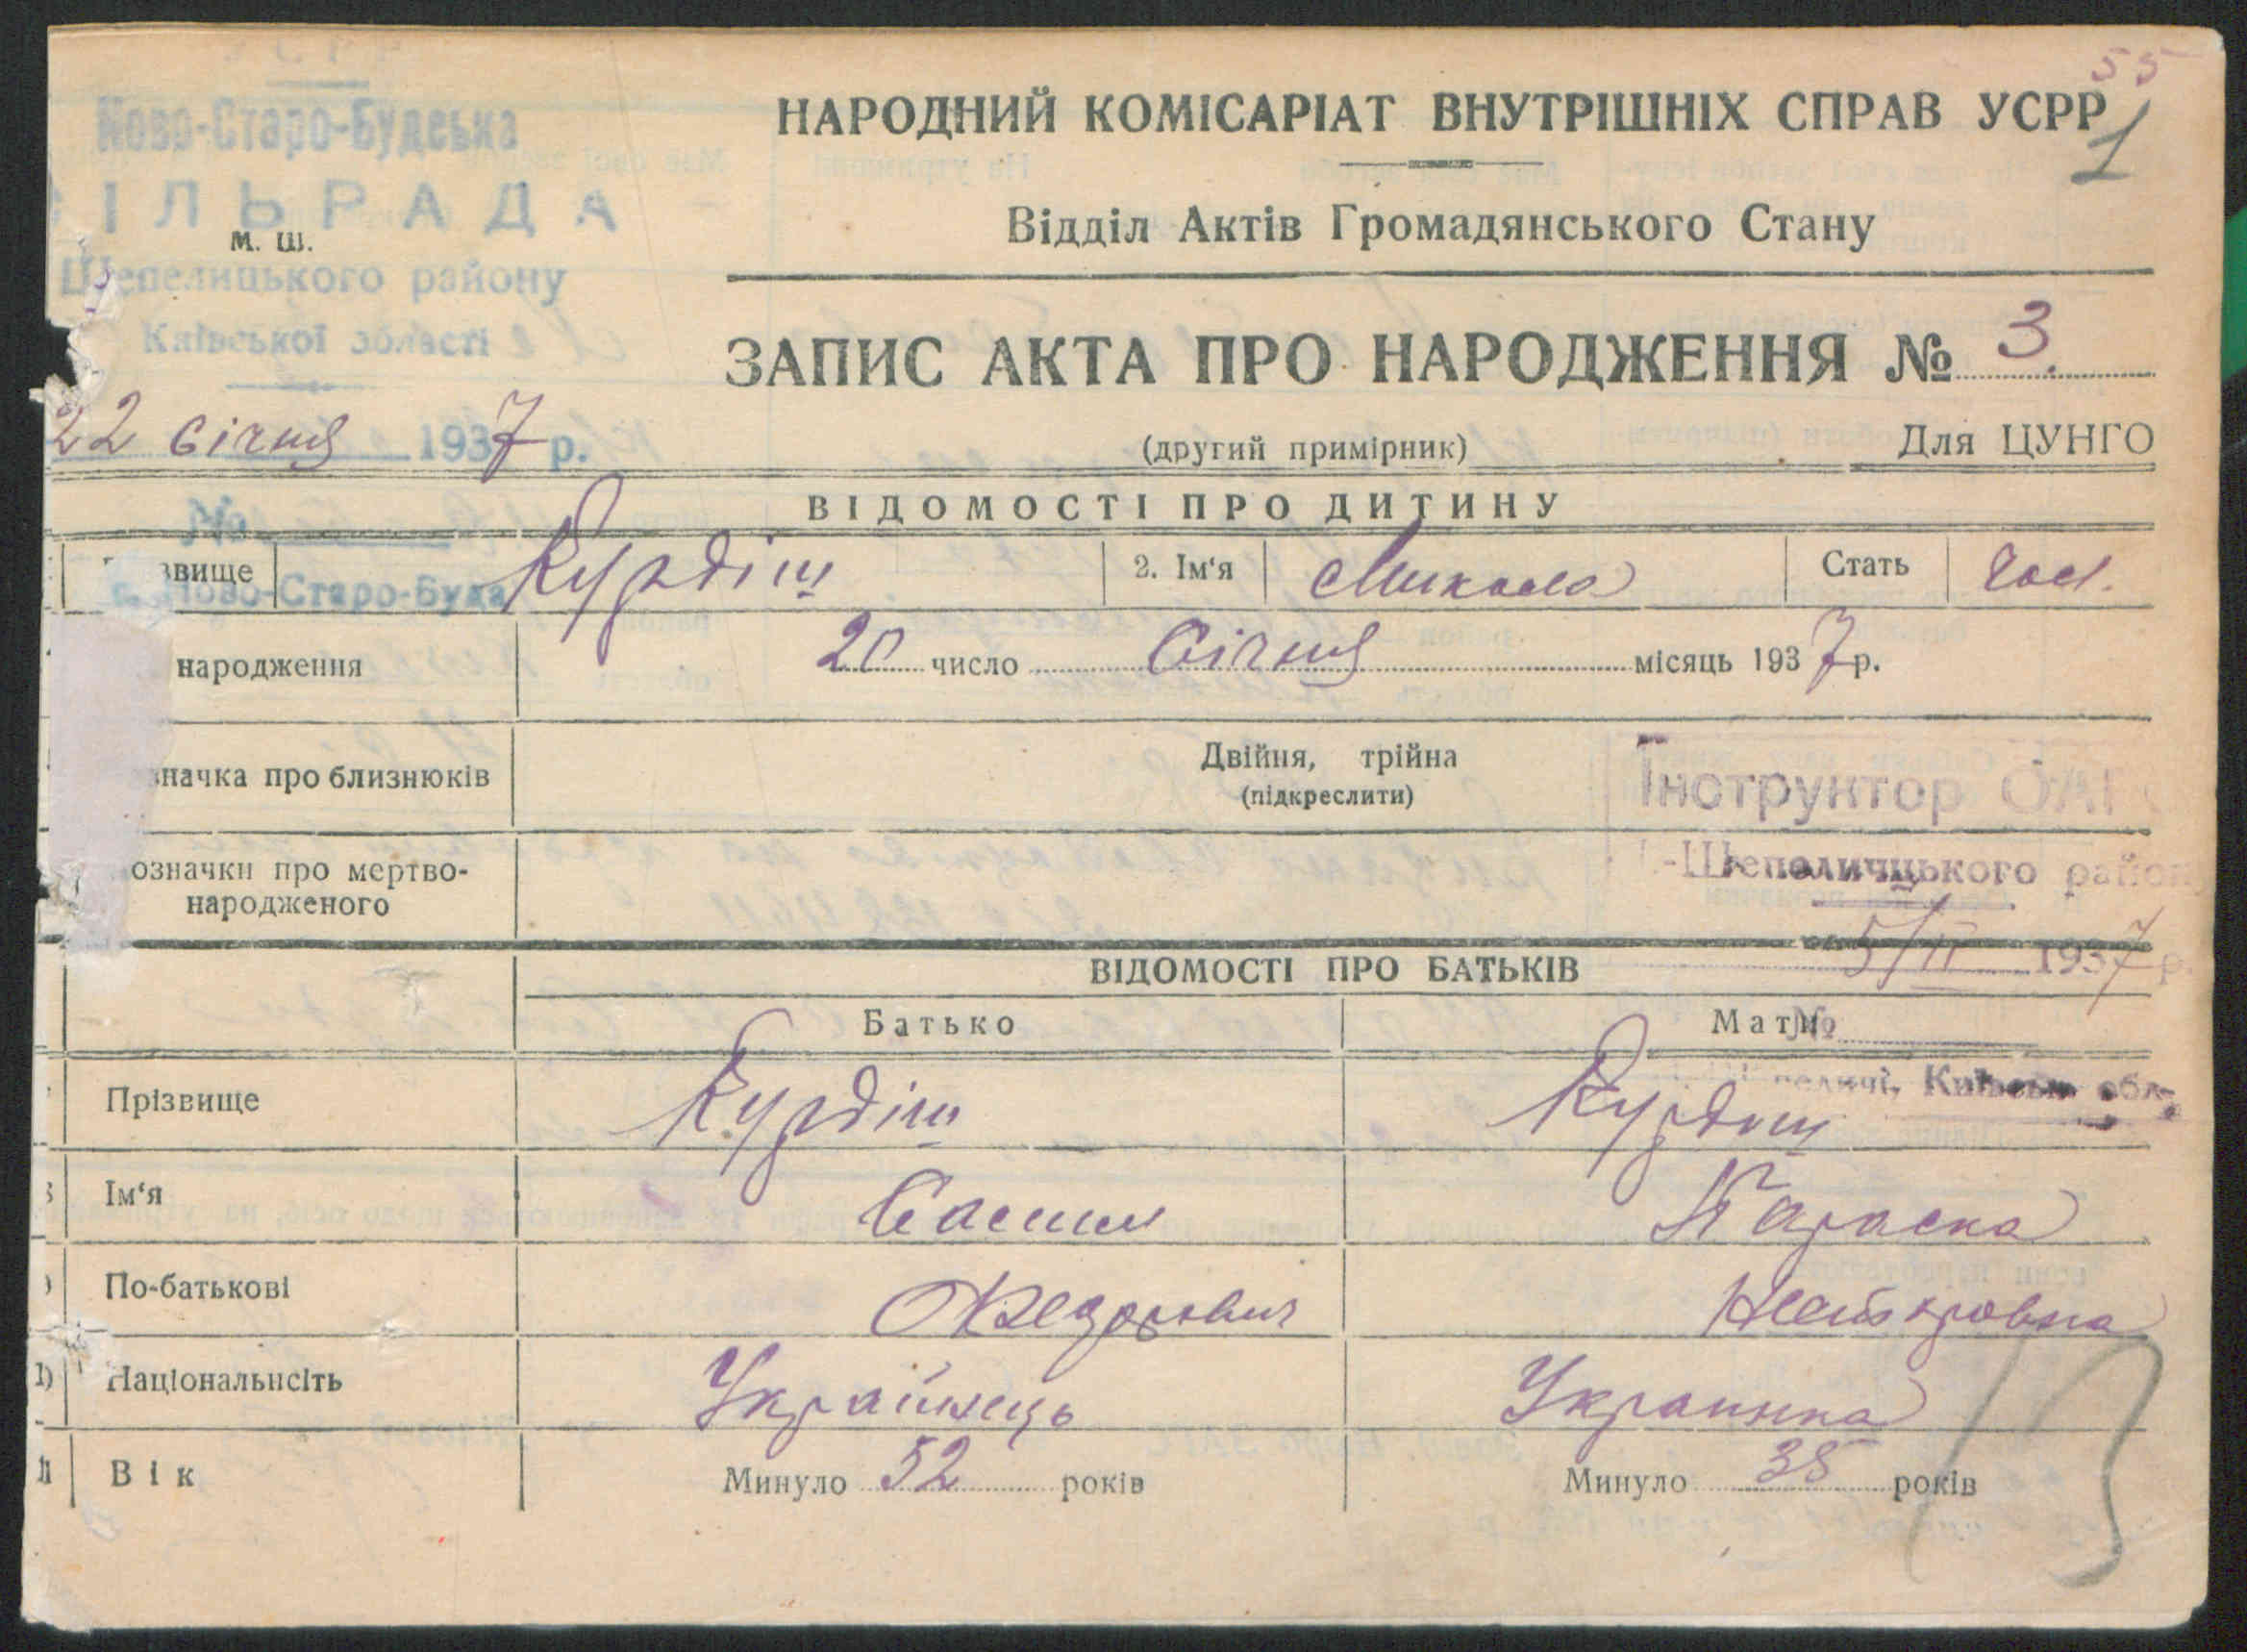 55
1
Ново-Старо-Будська
СІЛЬРАДА
м. ш.
Шепелицького району
Київської області
22 січня 1937 р.
№
с. Ново-Старо-Буда
НАРОДНИЙ КОМІСАРІАТ ВНУТРІШНІХ СПРАВ УСРР
Відділ Актів Громадянського Стану
ЗАПИС АКТА ПРО НАРОДЖЕННЯ № 3.
(другий примірник)
Для ЦУНГО
ВІДОМОСТІ ПРО ДИТИНУ
звище Курдіш 2. Ім'я Микола Стать чол.
народження 20 число Січня місяць 1937 р.
значка про близнюків Двійня, трійна
(підкреслити)
Інструктор ОАГС
-Шепеличцького району
означки про мертво-
народженого
5/II 1937 р.
ВІДОМОСТІ ПРО БАТЬКІВ
Батько Мати
№
Київськ обл.
Прізвище Курдіш Курдиш
Ім'я Василь Параска
По-батькові
Національнсіть Українець Украинка
11 Вік Минуло 32 років Минуло 35 років